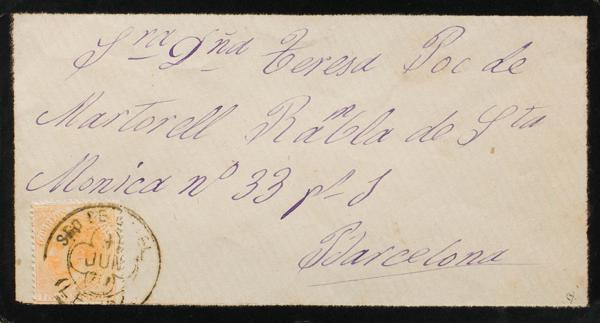 Sra Dña Teresa Poc de
Martorell Rambla de Sta
Monica nº 33 pl 1
Barcelona
JUN